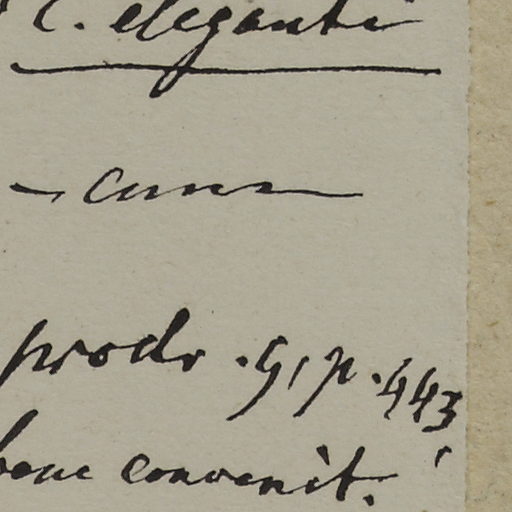 C. eleganti
prodr. 9, p. 443
bene convenit.